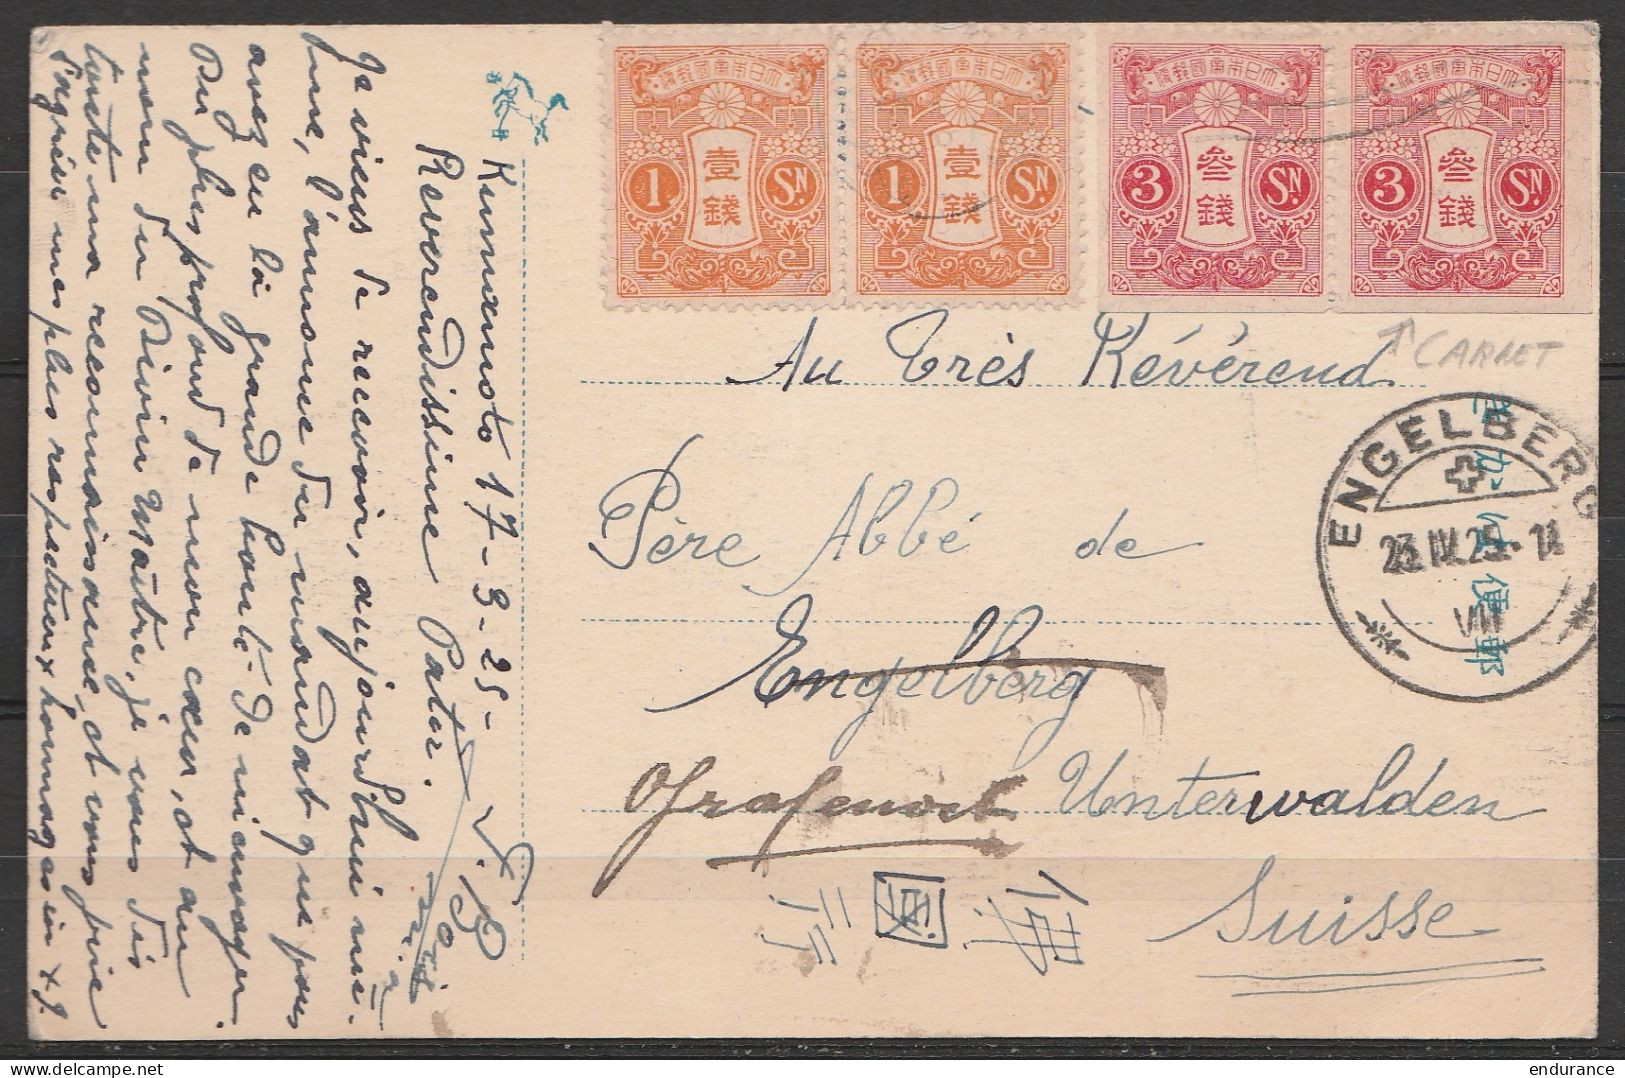 Kumamoto 17-3-25-
Reverendissime Pater.
Je viens de recevoir, aujourd'hui mê=
me, l'aumône du mandat que vous
avez eu la grande bonté de m'envoyer.
Du plus profond de mon cœur, et au
nom du Divin Maître, je vous dis
toute ma reconnaissance, et vous prie
d'agréer mes plus respectueux hommages in x J.
大日本帝國郵便
1 壹錢 Sɴ
大日本帝國郵便
1 壹錢 Sɴ
大日本帝國郵便
3 叁錢 Sɴ
大日本帝國郵便
3 叁錢 Sɴ
CARNET
Au Très Révérend
Père Abbé de
Engelberg
Grafenort Unterwalden
Suisse
佛
國
行
ENGELBERG
23.IV.25.
VIII
きかは便郵
endurance